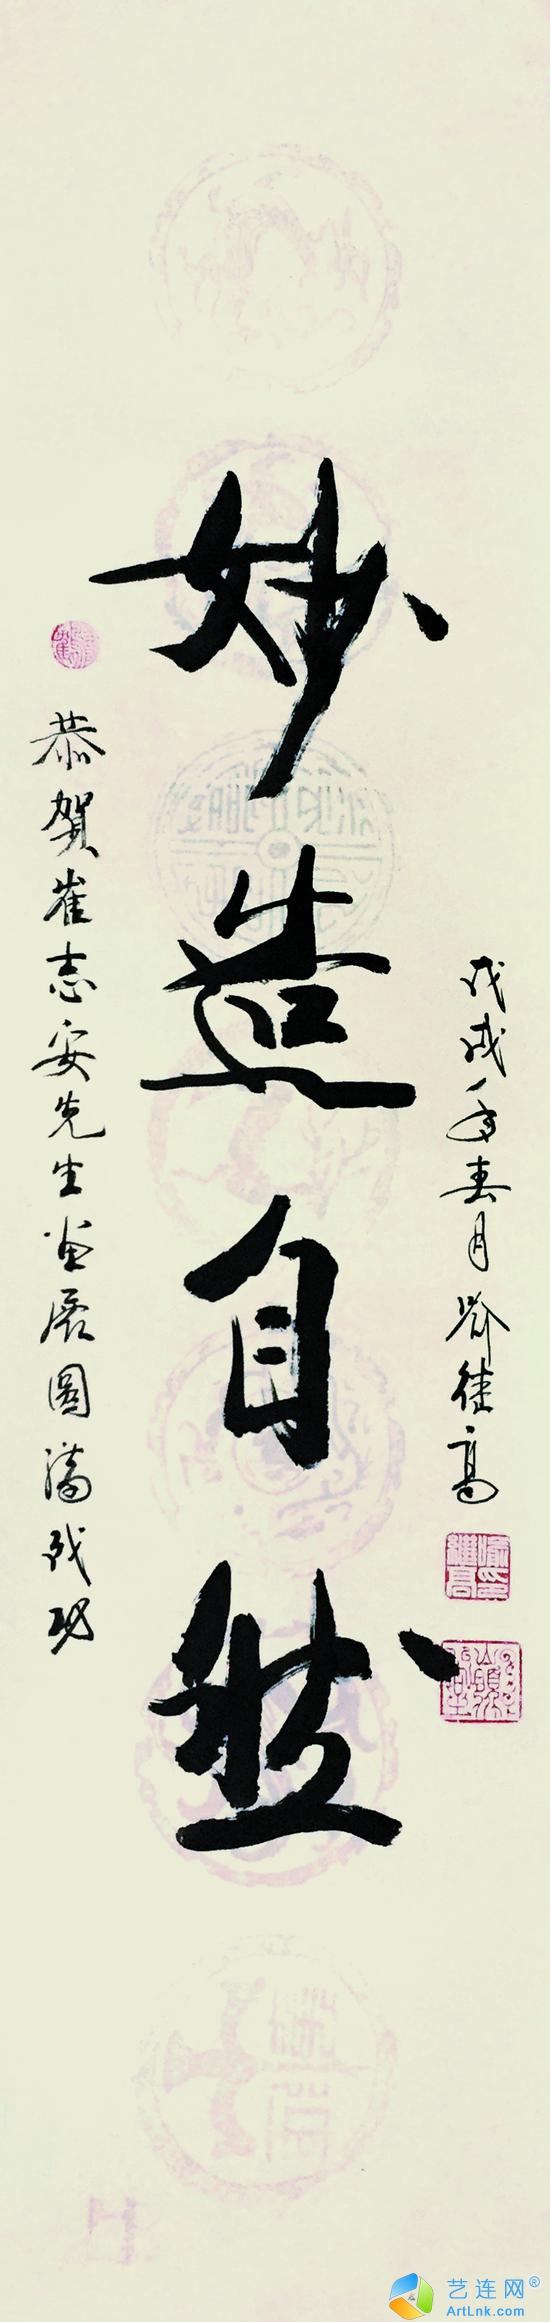 妙造自然
恭賀崔志安先生畫展圓滿成功
戊戌年春月喻继高
艺连网®
ArtLnk.com